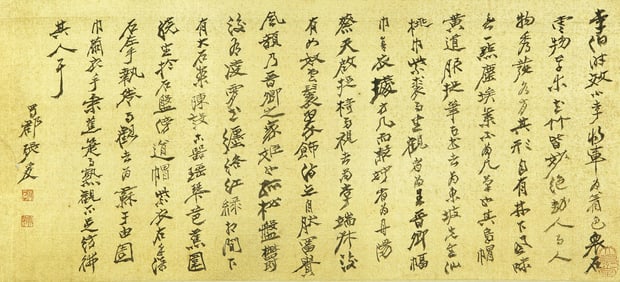 李伯時效小李將軍為著色泉石
雲物草木花竹皆妙絕動人而人
物秀發各肖其形自有林下風味
無一點塵埃氣不為凡筆也其烏帽
黃道服捉筆而書者為東坡先生仙
桃巾紫裘而坐觀者為王晉卿幅
巾青衣據方几而凝竚者為丹陽
蔡天啟捉椅而視者為李端叔後
有女奴雲鬟翠飾侍立自然富貴
風韻乃晉卿之家姬也孤松盤鬱
後有凌霄纏絡紅綠相間下
有大石案陳設古器瑤琴芭蕉圍
繞坐於石盤傍道帽紫衣右手倚
石左手執卷而觀書者為蘇子由團
巾繭衣手秉蕉箑而熟觀不足彷彿
其人耳